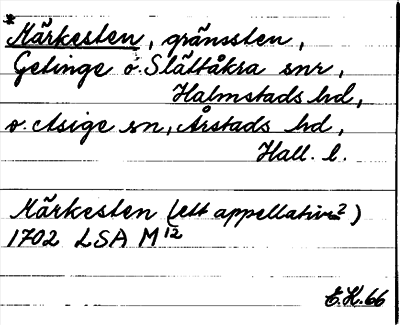 *Märkesten, gränssten,
Getinge o. Slättåkra snr,
Halmstads hd,
o. Asige sn, Årstads hd,
Hall. l.
Märkesten (ett appellativ?)
1702 LSA M12
E.H. 66